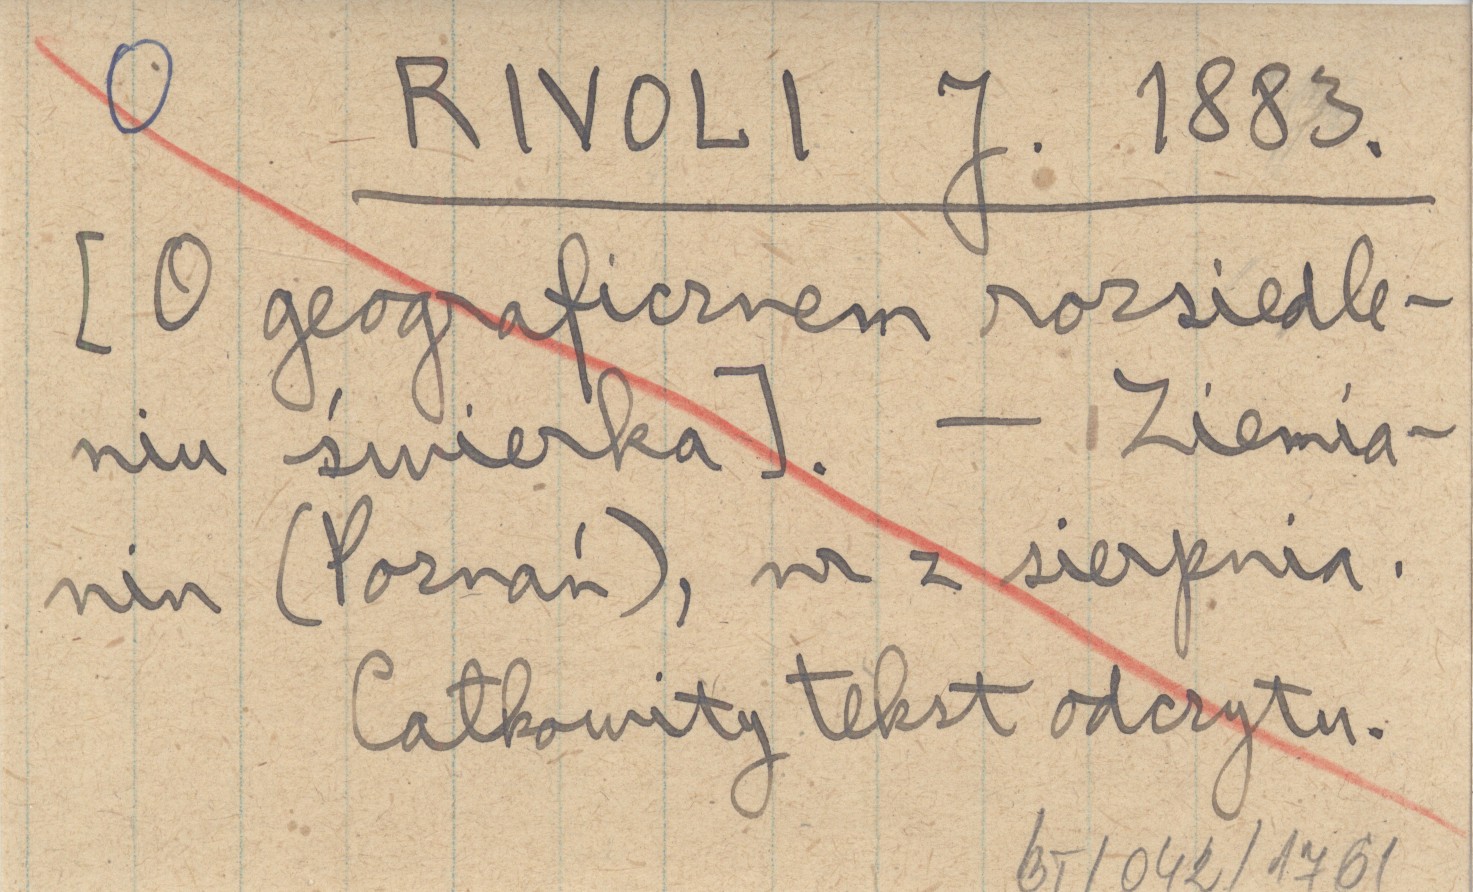 O RIVOLI J. 1883.
[O geograficznem rozsiedle-
niu świerka]. — Ziemia-
nin (Poznań), nr z sierpnia.
Całkowity tekst odczytu.
BT/042/1761